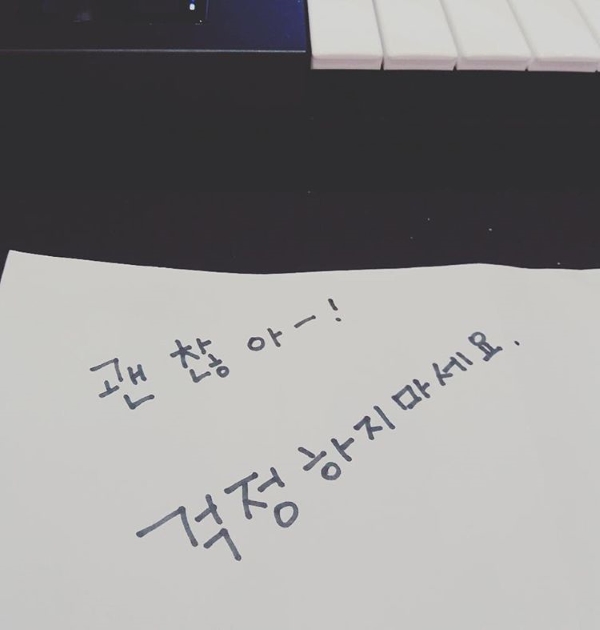 괜찮아~!
걱정하지마세요.